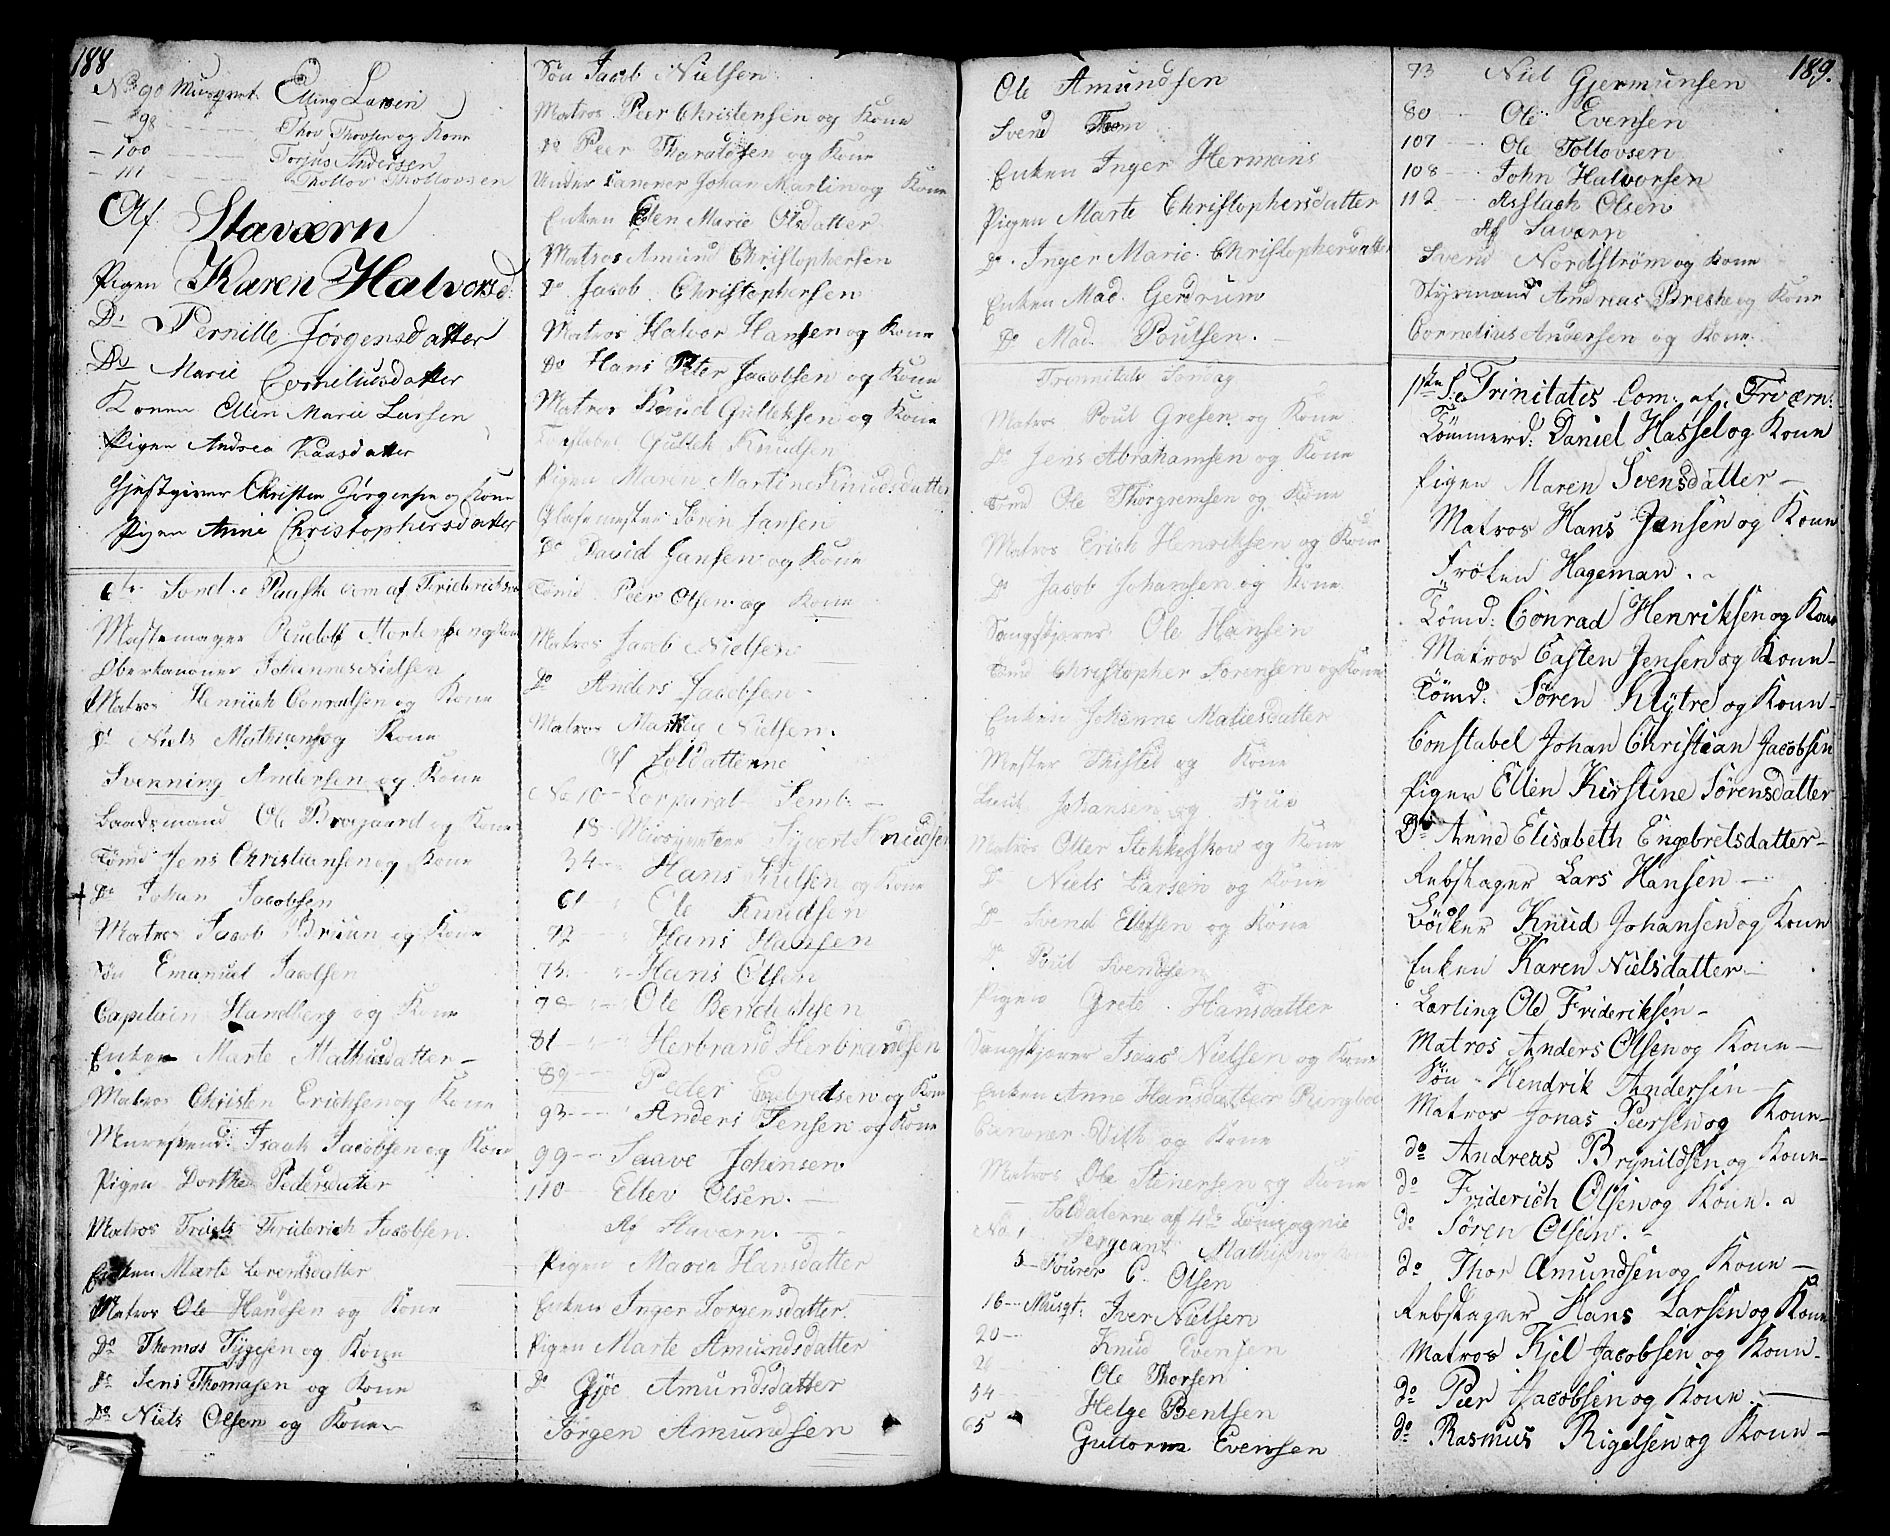 188
No 90 Musqvet. Elling Larsen
— 98 Thov Thovsen og Kone
— 100 Torjus Andersen
— 111 Thollov Thollovsen
Af Staværn
Pigen Karen Halvorsd:
Do Pernille Jørgensdatter
Do Marie Corneliusdatter
Konen Ellen Marie Larsen
Pigen Andrea Kaasdatter
Gjestgiver Christen Jørgensen og Kone
Pigen Anne Christophersdatter
6te Sond. e Paaske Com af Friderichsværn
Mastemager Rudolf og Kone
Oberkanoner Johannes Nielsen
Matros Henrich Conradsen og Kone
Do Niels Mathiasen og Kone
Svenning Andersen og Kone
Baadsmand Ole Bragaard og Kone
Tømd Jens Christiansen og Kone
Do Johan Jacobsen
Matros Jacob Bruun og Kone
Søn Emanuel Jacobsen
Capitain Handberg og Kone
Enken Marte Mathisdatter —
Matros Christen Erichsen og Kone
Muresvend: Isaach Jacobsen og Kone
Pigen Dorthe Pedersdatter
Matros Friderich Jacobsen.
Enken Marte Berentsdatter
Matros Ole Knudsen og Kone
Do Thomas Tygesen og Kone
Do Jens Thomasen og Kone
Do Niels Olsen og Kone —
Søn Jacob Nielsen
Matros Peer Christensen og Kone
Do Peer Tharaldsen og Kone
Under Canoner Johan Martin og Kone
Enken Elen Marie Olsdatter
Matros Amund Christophersen
Do Jacob Christophersen
Matros Halvor Hansen og Kone
Do Hans Peter Jacobsen og Kone
Matros Knud Gulleksen og Kone
Constabel Gullek Knudsen
Pigen Maren Martine Knudsdatter
Glasemester Søren Jansen
Do David Jansen og Kone
Tømd Peer Olsen og Kone
Matros Jacob Nielsen
Do Anders Jacobsen
Matros Nielsen.
Af Soldatterne
No 10 Corporal Semb. —
18 Musqveteer Syvert Knudsen
34 Hans Juulsen og Kone
61 Ole Knudsen
72 Hans Hansen
73 Hans Olsen
78 Ole Berthelsen
81 Herbrand Herbrandsen
89 Peder Engebredsen og Kone
93 Anders Jensen og Kone
99 Saave Johansen
110 Ellev Olsen. —
Af Staværn. —
Pigen Maria Hansdatter
Enken Inger Jørgensdatter.
Pigen Marte Amundsdatter
Do Gjøe Amundsdatter
Jørgen Amundsen
Ole Amundsen
Svend
Enken Inger Hermans
Pigen Marte Christophersdatter
Do. Inger Marie Christophersdatter
Enken Mad. Gerdrum
Do Mad. Poulsen. —
Trinnitatis Søndag
Matros Poul Gresen og Kone
Do Jens Abrahamsen og Kone
Tømd Ole Thorgremsen og Kone
Matros Erich Henriksen og Kone
Do Jacob Johansen og Kone
Sangskjører Ole Hansen
Tømd Christopher Sørensen og Kone
Enken Johanne Matiesdatter
Mester Thisted og Kone
Lieut Johansen og Frue
Matros Otter Stokkeskov og Kone
Do Niels Larsen og Kone
Do Svend Ellefsen og Kone
Do Poul Svendsen
Pigen Grete Hansdatter
Sangskjører Isaac Nielsen og Kone
Enken Anne Hansdatter
Canoner Vith og Kone
Matros Ole Stenersen og Kone
Soldaterne af 4de Compagnie
No 1 Sergeant Mathisen
5 Fourer C. Olsen
16 Musqt: Iver Nielsen
20 Knud Evensen
26 Ole Thorsen
54 Helge Bentsen
65 Guttorm Evensen
189.
73 Niel Gjermunsen
80 Ole Evensen
107 Ole Tollovsen
108 John Halvorsen
112 Asslach Olsen
Af Staværn
Svend Nordstrøm og Kone
Styrmand Andreas Breske og Kone
Cornelius Andersen og Kone.
1ste S: Trinitatis Com: af Friværn:
Tømmerd: Daniel Hassel og Kone
Pigen Maren Svensdatter —
Matros Hans Jensen og Kone
Frøken Hageman.
Tømd: Conrad Henriksen og Kone
Matros Casten Jensen og Kone —
Tømd: Søren Klytre og Kone —
Constabel Johan Christian Jacobsen
Pigen Ellen Kirstine Sørensdatter
Do Anne Elisabeth Engebretsdatter —
Rebslager Lars Hansen —
Bödker Knud Johansen og Kone
Enken Karen Nielsdatter —
Lærling Ole Frideriksen —
Matros Anders Olsen og Kone —
Søn Hendrik Andersen —
Matros Jonas Peersen og Kone —
do Andreas Brynildsen og Kone —
do Friderich Olsen og Kone.
do Søren Olsen. —
do Thor Amundsen og Kone —
Rebslager Hans Larsen og Kone
Matros Kjel Jacobsen og Kone —
do Peer Jacobsen og Kone. —
do Rasmus Rigelsen og Kone —